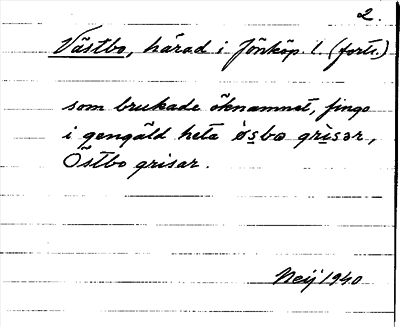 2.
Västbo, härad i Jönköp. l. (forts.)
som brukade öknamnet, fingo
i gengäld heta òsbo grìsər,
Östbo grisar.
Neij 1940